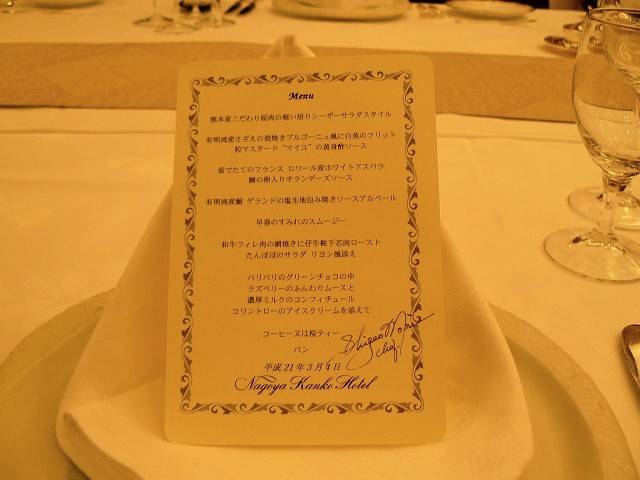 Menu
熊本産こだわり桜肉の軽い焙りシーザーサラダスタイル
有明湾産さざえの殻焼きブルゴーニュ風に白魚のフリット
粒マスタード "マイユ" の黄身酢ソース
茹でたてのフランス ロワール産ホワイトアスパラ
鱒の卵入りオランデーズソース
有明湾産鯛 ゲランドの塩生地包み焼きソースアルベール
早春のすみれのスムージー
和牛フィレ肉の網焼きに仔牛鞍下芯肉ロースト
たんぽぽのサラダ リヨン風添え
パリパリのグリーンチョコの中
ラズベリーのふんわりムースと
濃厚ミルクのコンフィチュール
コワントローのアイスクリームを添えて
コーヒー又は桜ティー
パン
平成21年3月4日
chef
Nagoya Kanko Hotel